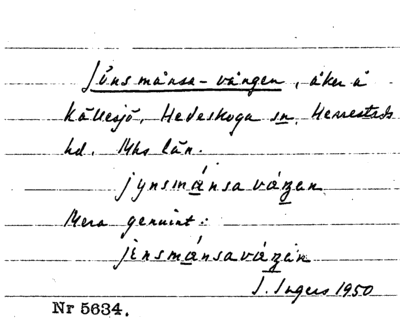 Jönsmånsa-vången, åker å
Källesjö, Hedeskoga sn, Herrestads
hd. Mhs län.
jynsmánsa váŋen
Mera genuint:
jensmánsaváŋen
I. Ingers 1950
Nr 5634.